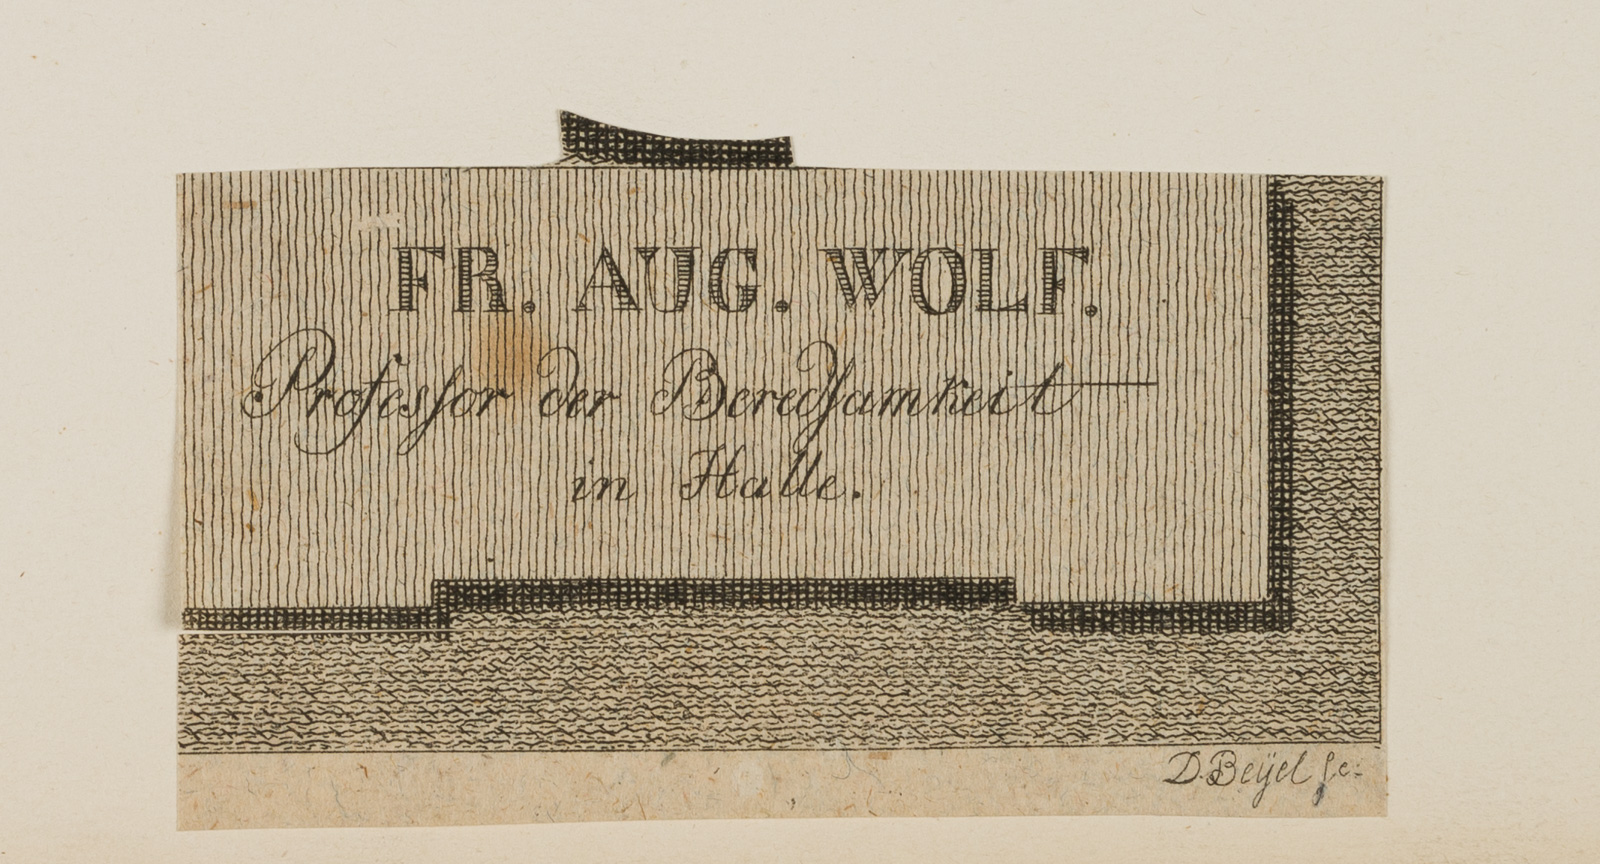 FR. AUG. WOLF.
Professor der Beredsamkeit
in Halle.
D. Beÿel sc: